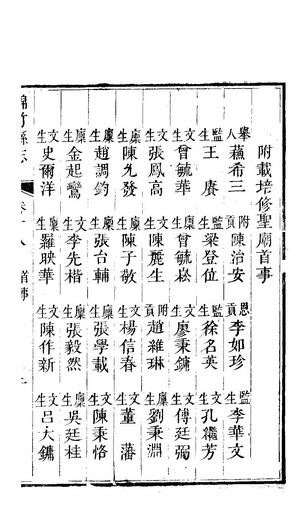 附載培修聖廟首事
舉人蘓希三 附貢陳治安 恩貢李如珍 監生李華文
監生王賡 監生梁登位 監生徐名英 文生孔繼芳
文生曾毓華 廩生曾毓崧 文生廖秉鏞 文生傅廷弼
文生張鳳高 文生陳麗生 附貢趙維琳 廩生劉秉淵
廩生陳九發 廩生陳子敬 文生楊信春 文生董藩
廩生趙調鈞 廩生張台輔 廩生張學載 文生陳秉恪
廩生金起鸞 文生李先楷 廩生張毅然 廩生吳廷桂
文生史爾洋 廩生羅映華 文生陳作新 文生呂大鏞
綿竹縣志 卷十八